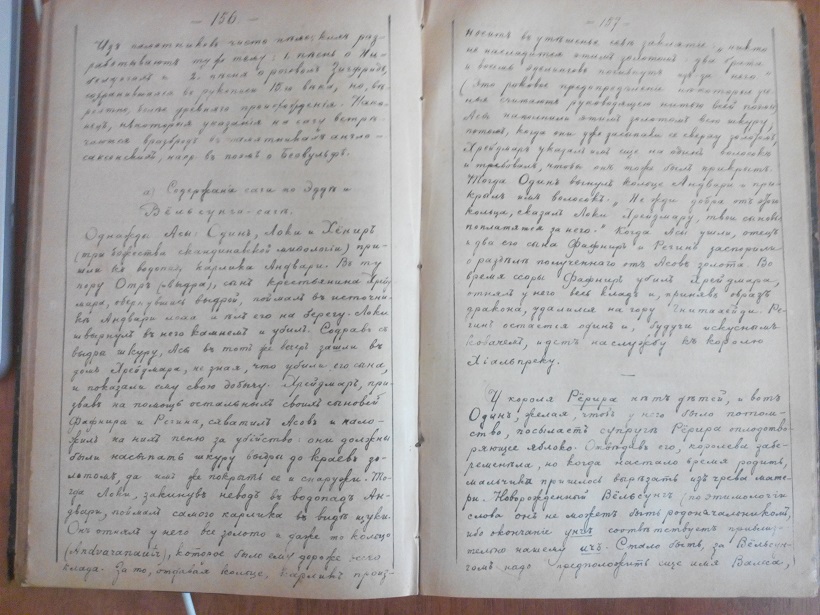 — 156 —
Изъ памятниковъ чисто нѣмецкихъ раз-
рабатываютъ ту же тему: 1. пѣснь о Ни-
белунгахъ и 2. пѣсня о роговомъ Зигфридѣ,
сохранившаяся въ рукописи 15го вѣка, но, вѣ-
роятно, болѣе древняго происхожденія. Нако-
нецъ, нѣкоторыя указанія на сагу встрѣ-
чаются въ памятникахъ англо-
саксонскихъ, напр. въ поэмѣ о Беовульфѣ.
а) Содержаніе саги по Эддѣ и
Вёльсунга-сага.
Однажды Асы: Одинъ, Локи и Хёниръ
(три божества скандинавской миѳологіи) при-
шли къ водопаду карлика Андвари. Въ ту
пору Отръ (выдра), сынъ крестьянина Хрейд-
мара, обернувшись выдрой, поймалъ въ источни-
кѣ Андвари и ѣлъ его на берегу. Локи
швырнулъ въ него камнемъ и убилъ. Содравъ съ
выдры шкуру, Асы въ тотъ же вечеръ зашли въ
домъ Хрейдмара, не зная, что убили его сына,
и показали ему свою добычу. Хрейдмаръ, при-
звавъ на помощь остальныхъ своихъ сыновей
Фафнира и Регина, схватилъ Асовъ и нало-
жилъ на нихъ пеню за убійство: они должны
были насыпать шкуру выдры до краевъ зо-
лотомъ, да имъ же покрыть ее и снаружи. То-
гда Локи, закинувъ неводъ въ водопадъ Ан-
двари, поймалъ самого карлика въ видѣ щуки.
Онъ отнялъ у него все золото и даже то кольцо
(Andvaranaut), которое было ему дороже всего
клада. За то, отдавая кольцо, карликъ произ-
— 157 —
носитъ въ утѣшенье себѣ заклятье: „никто
не насладится этимъ золотомъ: два брата
и восемь погибнутъ изъ за него."
(Это роковое предопредѣленіе нѣкоторые уче-
ные считаютъ руководящею нитью всей поэмы)
Асы наполнили этимъ золотомъ всю шкуру,
потомъ, когда они уже засыпали и сверху золотомъ,
Хрейдмаръ указалъ имъ еще на одинъ волосокъ
и требовалъ, чтобы онъ тоже былъ прикрытъ.
Тогда Одинъ вынулъ кольцо Андвари и при-
крылъ имъ волосокъ. „Не жди добра отъ этого
кольца, сказалъ Локи Хрейдмару, твои сыновья
поплатятся за него." Когда Асы ушли, отецъ
и два его сына Фафниръ и Регинъ заспорили
о раздѣлѣ полученнаго отъ Асовъ золота. Во
время ссоры Фафниръ убилъ Хрейдмара,
отнялъ у него весь кладъ и, принявъ образъ
дракона, удалился на гору Гнитахейди. Ре-
гинъ остается одинъ и, будучи искуснымъ
ковачемъ, идетъ на службу къ королю
Хіальпреку.
У короля Рёрира нѣтъ дѣтей, и вотъ
Одинъ, желая, чтобъ у него было потом-
ство, посылаетъ супругѣ Рёрира плодотво-
рящее яблоко. Отвѣдавъ его, королева забе-
ременѣла, но когда настало время родить,
мальчика пришлось вырѣзать изъ чрева мате-
ри. Новорожденный Вёльсунгъ (по этимологіи
слова онъ не можетъ быть родоначальникомъ,
ибо окончаніе унгъ соотвѣтствуетъ приблизи-
тельно нашему ичъ. Стало быть, за Вёльсун-
гомъ надо предположить еще имя Вальса,)